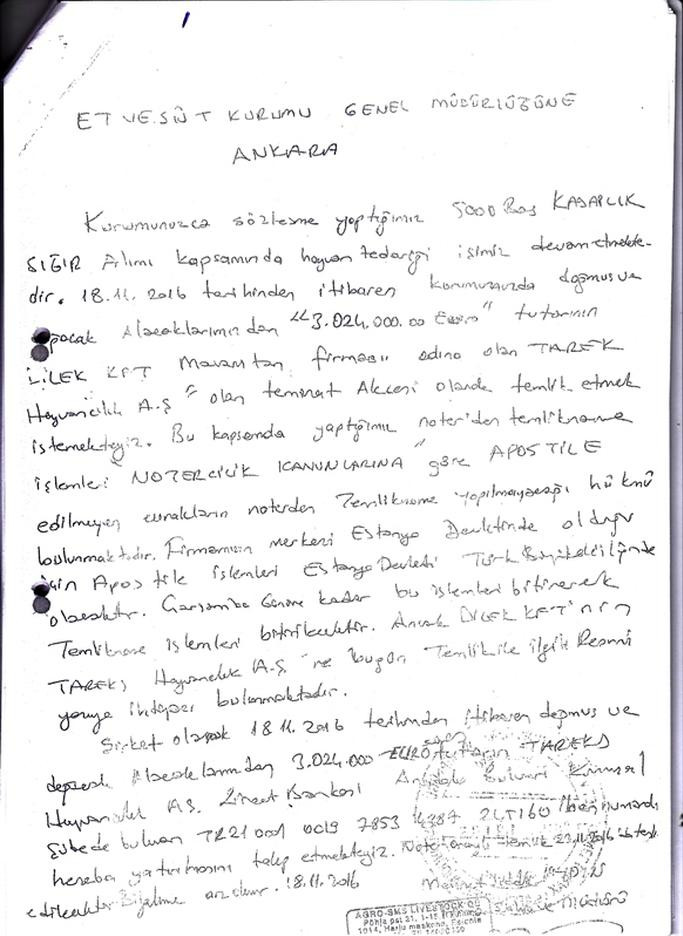 ET VE SÜT KURUMU GENEL MÜDÜRLÜĞÜNE
ANKARA
Kurumunuzca sözleşme yaptığımız 5000 Baş KASAPLIK
SIĞIR Alımı kapsamında hayvan tedariği işimiz devam etmekte-
dir. 18.11.2016 tarihinden itibaren kurumunuzda doğmuş ve
alacaklarımızdan "3.024.000.00 Euro" tutarının
DİLEK KFT Macaristan firması adına olan TAREKS
Hayvancılık A.Ş " olan teminat Akcesi olarak temlik etmek
istemekteyiz. Bu kapsamda yaptığımız noter'den temlikname
işlemleri NOTERCİLİK KANUNLARINA" göre APOSTİLE
edilmeyen evrakların noterden Temlikname yapılmayacağı hükmü
bulunmaktadır. Firmamızın merkezi Estonya Devletinde olduğu
için Apostile işlemleri Estonya Devleti Türk Büyükelçiliğinde
olacaktır. Çarşamba Gününe kadar bu işlemleri bitirerek
Temlikname işlemleri bitirilecektir. Ancak DİLEK KFT'nin
TAREKS Hayvancılık A.Ş 'ne bugün Temlik ile ilgili Resmi
yazıya ihtiyacı bulunmaktadır.
Şirket olarak 18.11.2016 tarihinden itibaren doğmuş ve
Alacaklarımızdan 3.024.000 EURO tutarın TAREKS
Hayvancılık A.Ş. Ziraat Bankası Anadolu Bulvarı Kurumsal
Şubede bulunan TR21 0001 0019 7853 iban numaralı
hesaba yatırılmasını talep etmekteyiz. 23.11.2016
edilecektir Bilgilerine arz olunur. 18.11.2016
AGRO-SMS LIVESTOCK OÜ
Põhja pst 31, 1-15
Harju maakond, Estonia